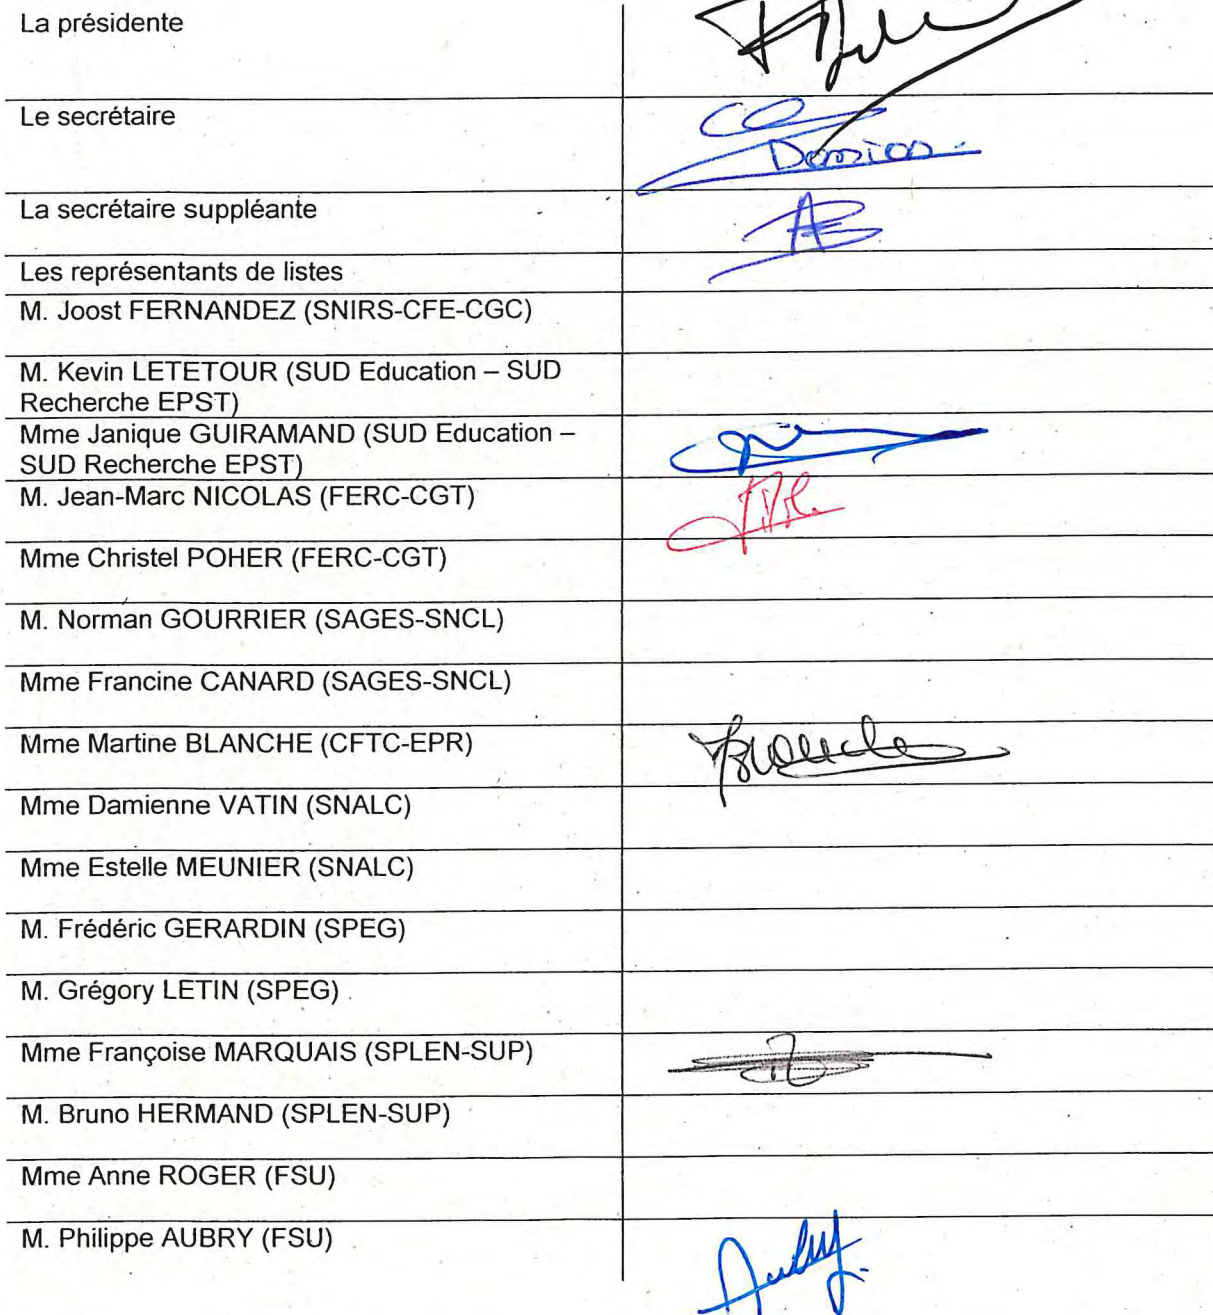 La présidente
Le secrétaire
La secrétaire suppléante
Les représentants de listes
M. Joost FERNANDEZ (SNIRS-CFE-CGC)
M. Kevin LETETOUR (SUD Education – SUD
Recherche EPST)
Mme Janique GUIRAMAND (SUD Education –
SUD Recherche EPST)
M. Jean-Marc NICOLAS (FERC-CGT)
Mme Christel POHER (FERC-CGT)
M. Norman GOURRIER (SAGES-SNCL)
Mme Francine CANARD (SAGES-SNCL)
Mme Martine BLANCHE (CFTC-EPR)
Mme Damienne VATIN (SNALC)
Mme Estelle MEUNIER (SNALC)
M. Frédéric GERARDIN (SPEG)
M. Grégory LETIN (SPEG)
Mme Françoise MARQUAIS (SPLEN-SUP)
M. Bruno HERMAND (SPLEN-SUP)
Mme Anne ROGER (FSU)
M. Philippe AUBRY (FSU)